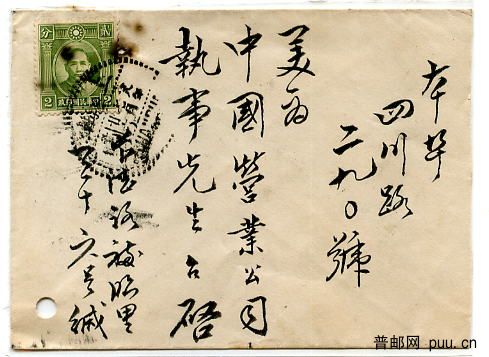 本埠
四川路
二九〇號
美商
中國營業公司
執事先生台啓
六号緘
分 貳
2 2
普邮网 puu.cn